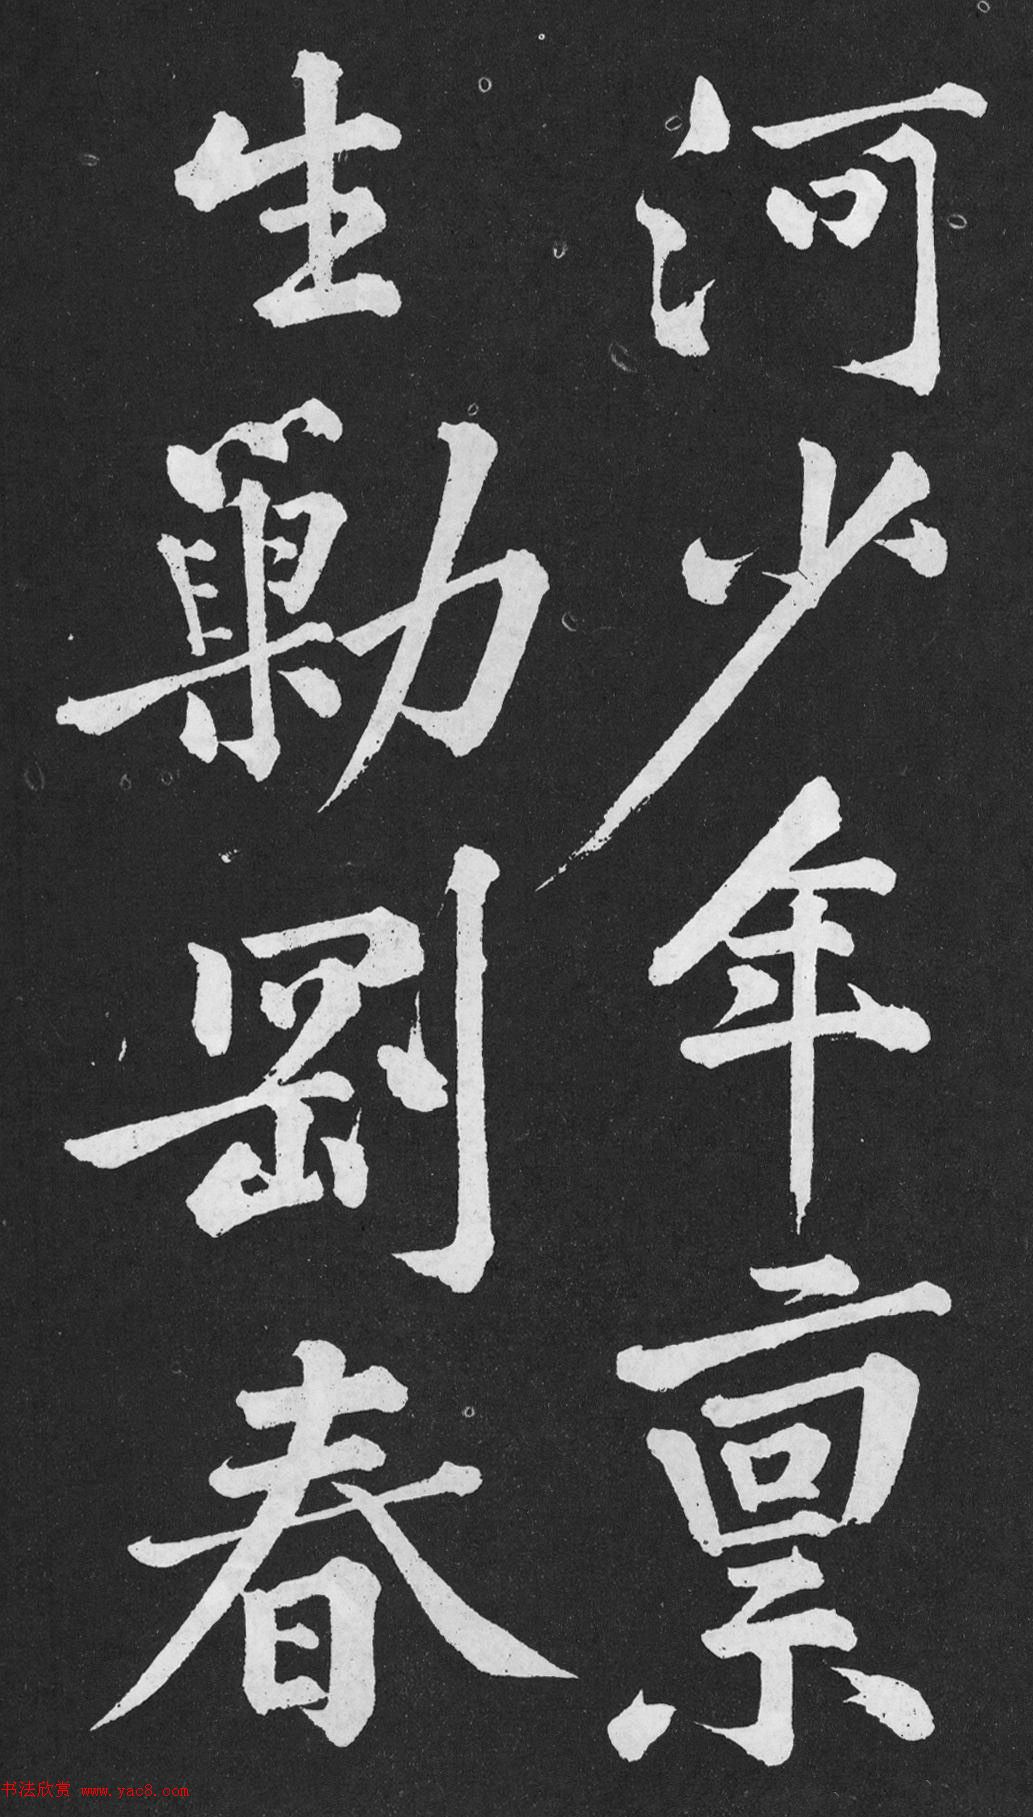 河少年禀
生勦剛春
书法欣赏 www.yac8.com